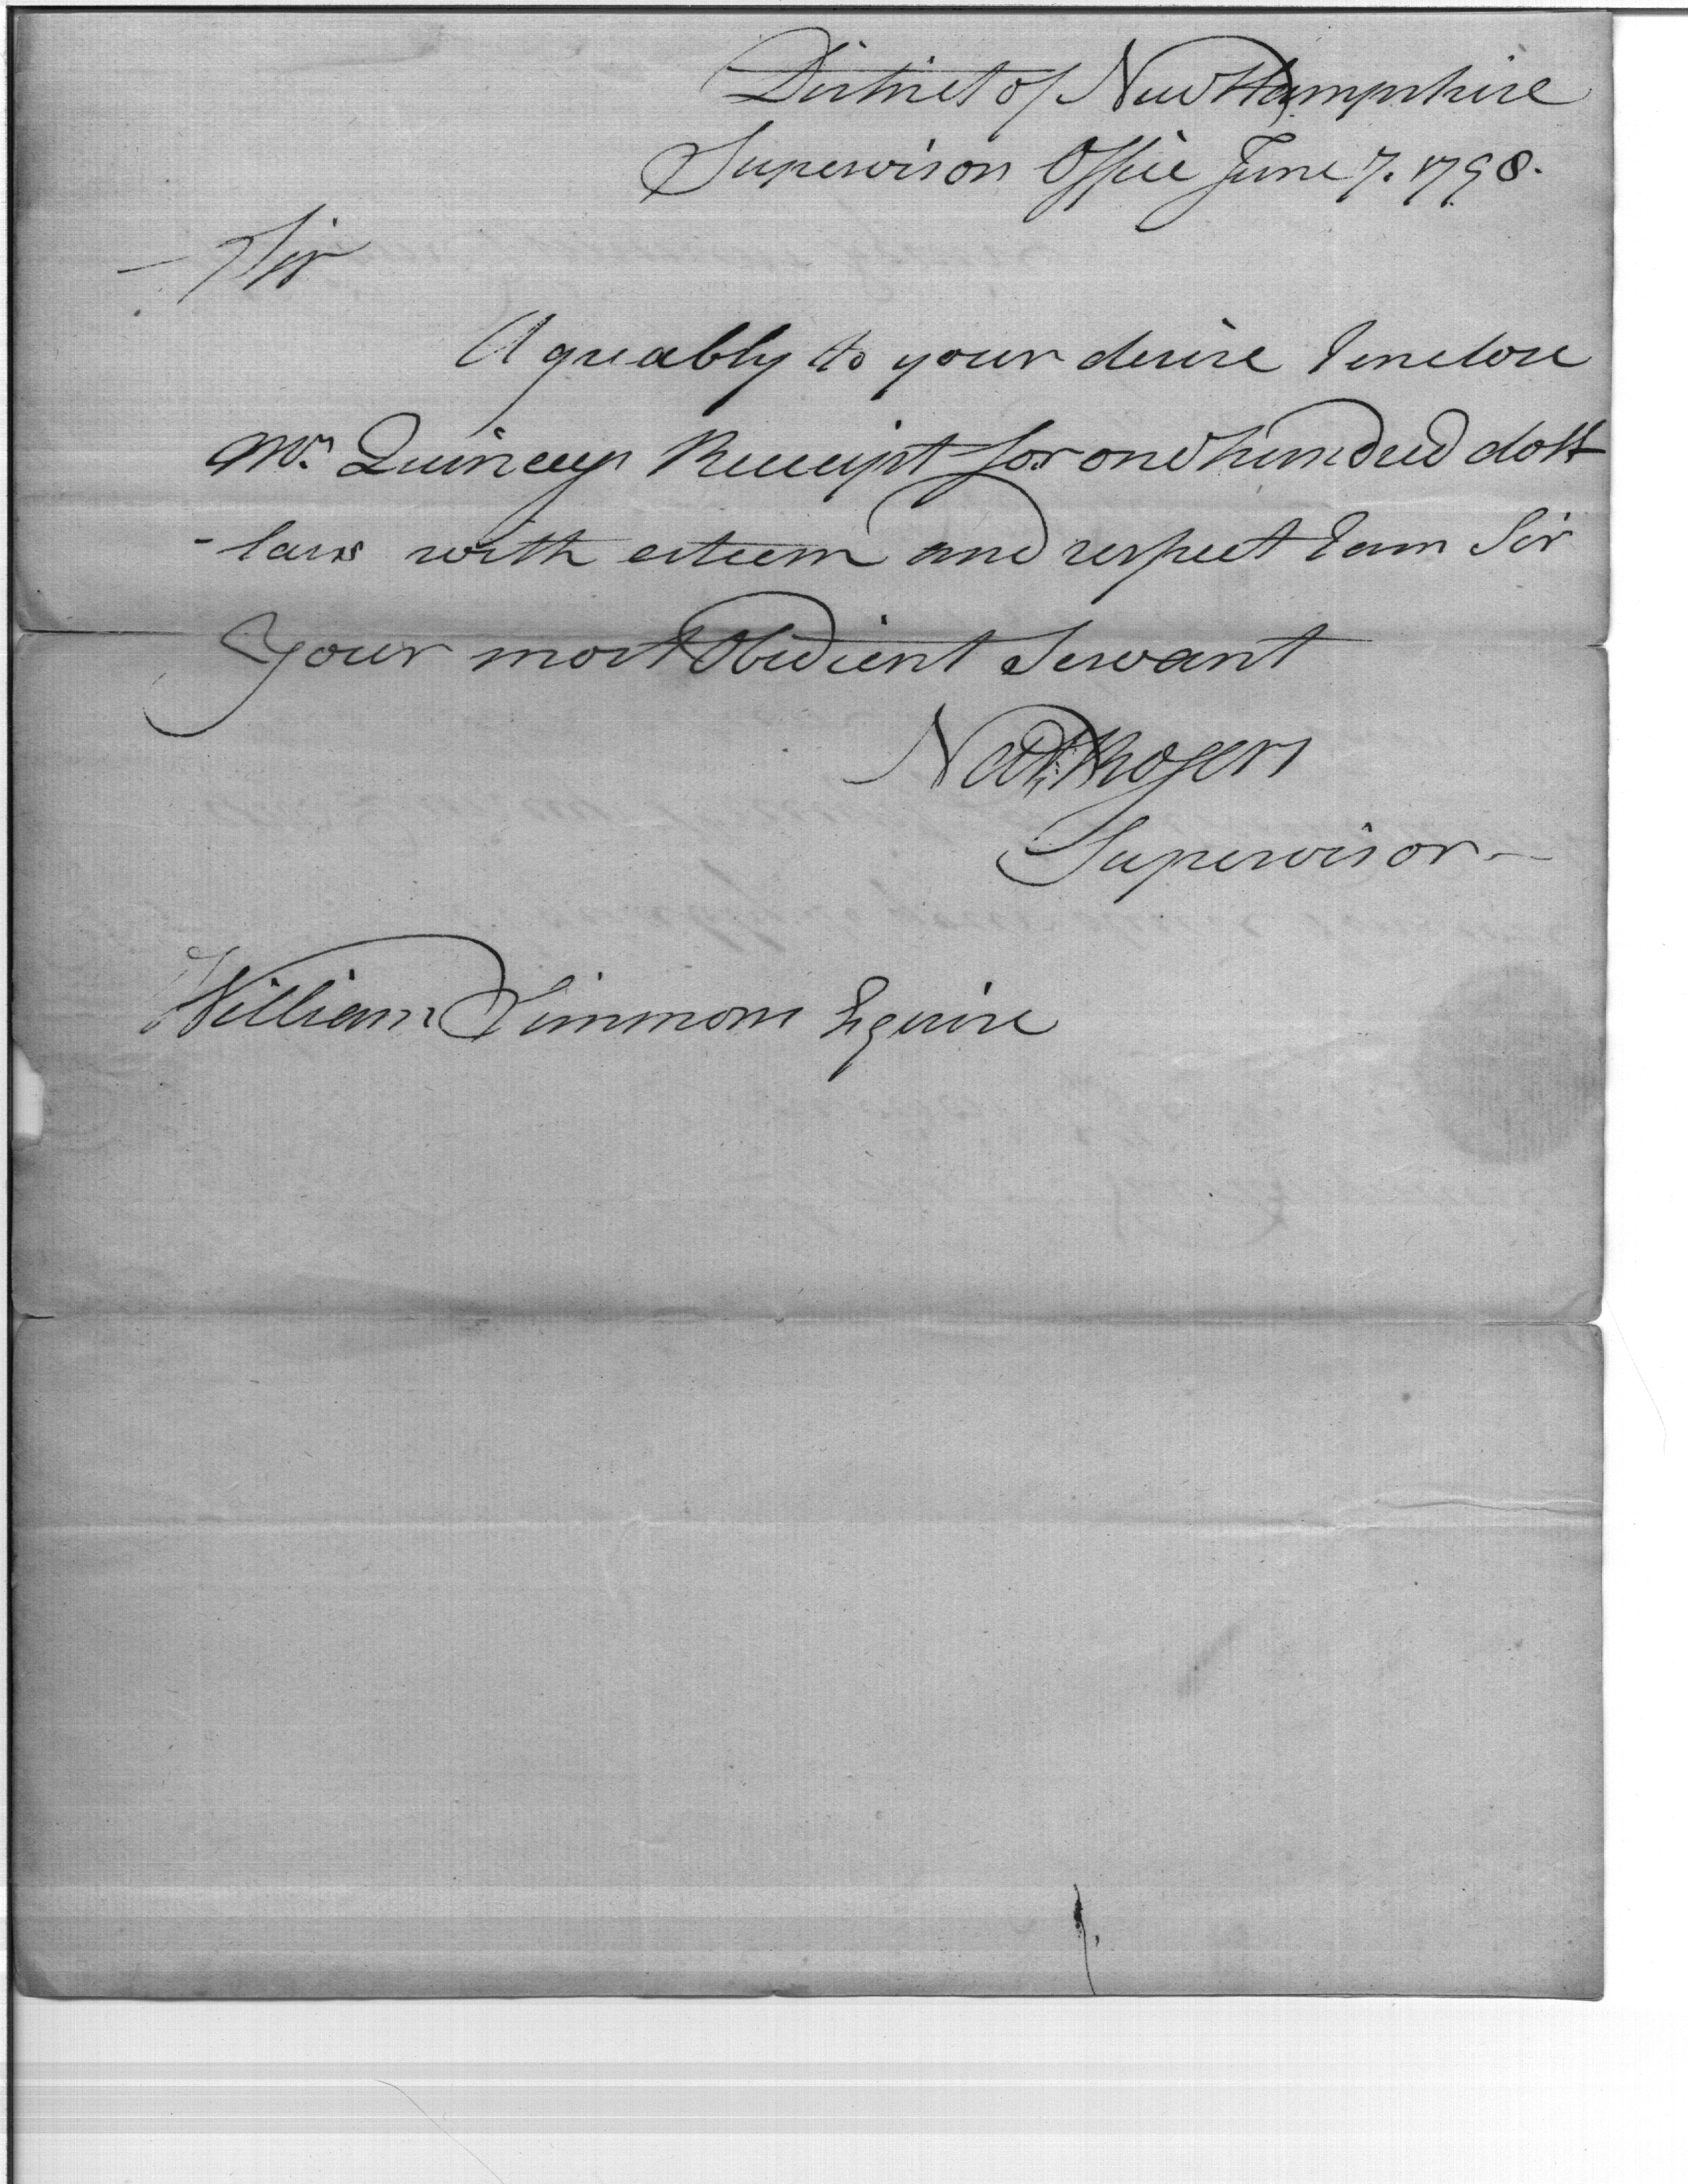 District of New Hampshire
Supervisors Office June 7. 1798.
Sir
Agreably to your desire I enclose
Mr. Quinceys Receipt for one hundred doll
-lars with esteem and respect I am Sir
Your most Obedient Servant
Nath. Rogers
Supervisor
William Simmons Esquire